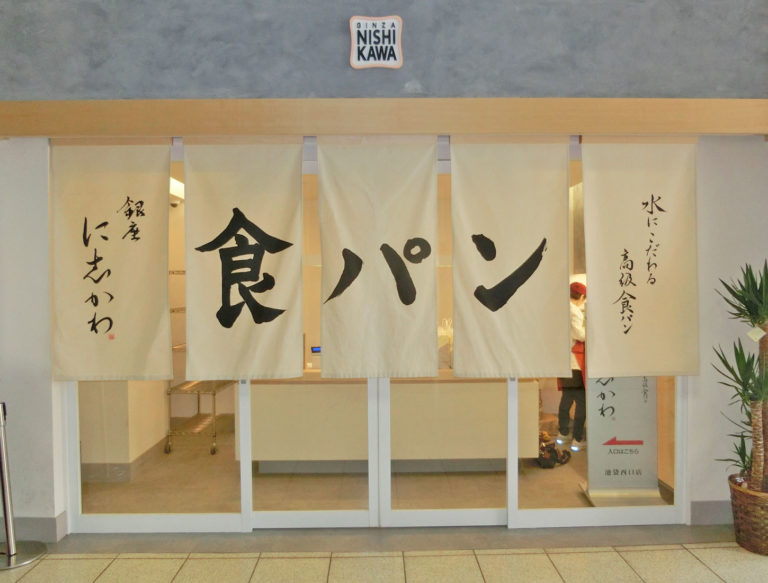 GINZA
NISHI
KAWA
銀座
に志かわ
食パン
水にこだわる
高級食パン
志かわ
入口はこちら
池袋西口店